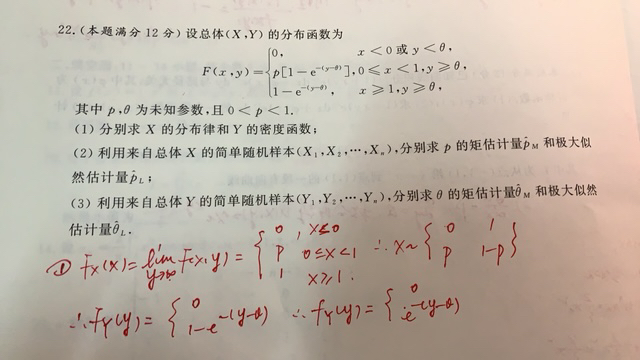 22.(本题满分 12 分)设总体(X,Y)的分布函数为
F(x,y)={0, x<0 或 y<θ,
p[1-e^{-(y-θ)}],0≤x<1,y≥θ,
1-e^{-(y-θ)}, x≥1,y≥θ,
其中 p,θ 为未知参数,且 0<p<1.
(1) 分别求 X 的分布律和 Y 的密度函数;
(2) 利用来自总体 X 的简单随机样本(X₁,X₂,…,Xₙ),分别求 p 的矩估计量p̂_M 和极大似
然估计量p̂_L;
(3) 利用来自总体 Y 的简单随机样本(Y₁,Y₂,…,Yₙ),分别求 θ 的矩估计量θ̂_M 和极大似然
估计量θ̂_L.
① F_X(x)=lim_{y→∞} F(x,y)={0, x≤0
p 0≤x<1
1 x≥1. ∴X~{0 1
p 1-p}
∴F_Y(y)={0
1-e^{-(y-θ)} ∴f_Y(y)={0
e^{-(y-θ)}